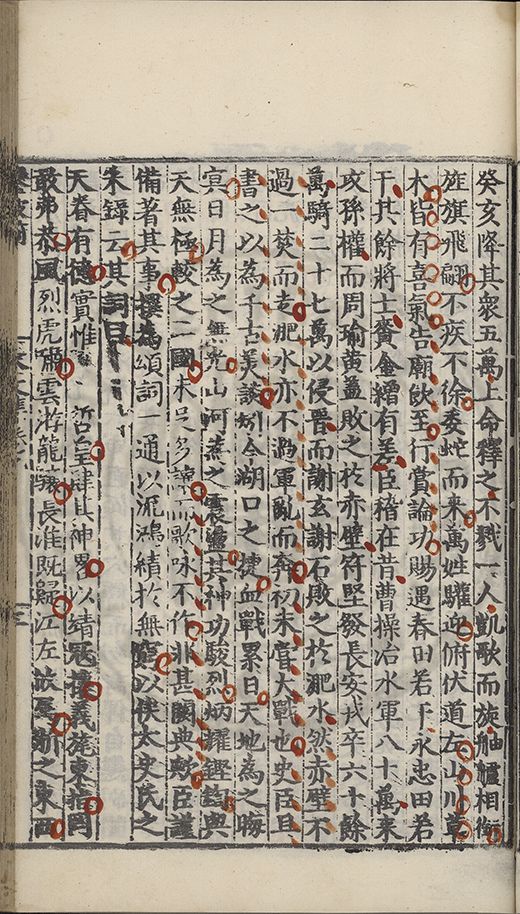 癸亥降其衆五萬上命釋之不戮一人凱歌而旋舳艫相銜
旌旗飛翩不疾不徐委蛇而來萬姓驩迎俯伏道左山川草
木皆有喜氣告廟飲至行賞論功賜遇春田若干永忠田若
干其餘將士賚金繒有差臣稽在昔曹操治水軍八十萬來
攻孫權而周瑜黃蓋敗之於赤壁符堅發長安戎卒六十餘
萬騎二十七萬以侵晉而謝玄謝石敗之於淝水然赤壁不
過一燹而走淝水亦不過軍亂而奔初未嘗大戰也史臣且
書之以為千古美談矧今湖口之捷血戰累日天地為之晦
冥日月為之無光山河為之震盪其神功駿烈炳耀鏗鍧與
天無極較之二國未足多讓而歌咏不作非甚闕典歟臣謹
備著其事撰為頌詞一通以流鴻績於無窮以俟太史氏之
采錄云其詞曰
天眷有德實惟 哲皇肆其神畧以靖冠攘義旄東指罔
敢弗恭風烈虎嘯雲游龍驤長淮既歸江左故
之東西